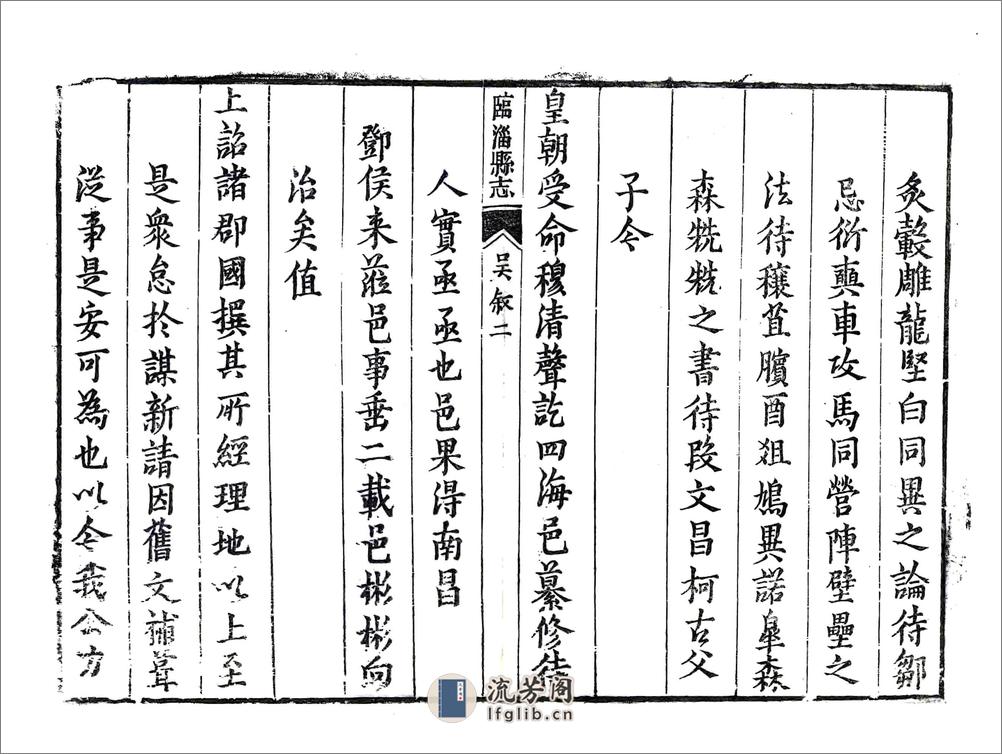 炙轂雕龍堅白同異之論待鄒
忌衍奭車攻馬同營陣壁壘之
法待穰苴臏酉狙鳩異諾臯森
森兟兟之書待段文昌柯古父
子今
皇朝受命穆清聲訖四海邑纂修待
臨淄縣志
吴叙二
人實亟亟也邑果得南昌
鄧侯来蒞邑事垂二載邑彬彬向
治矣值
上詔諸郡國撰其所經理地以上至
是衆怠扵謀新請因舊文補葺
從事是安可為也以令我公方
流芳阁
lfglib.cn